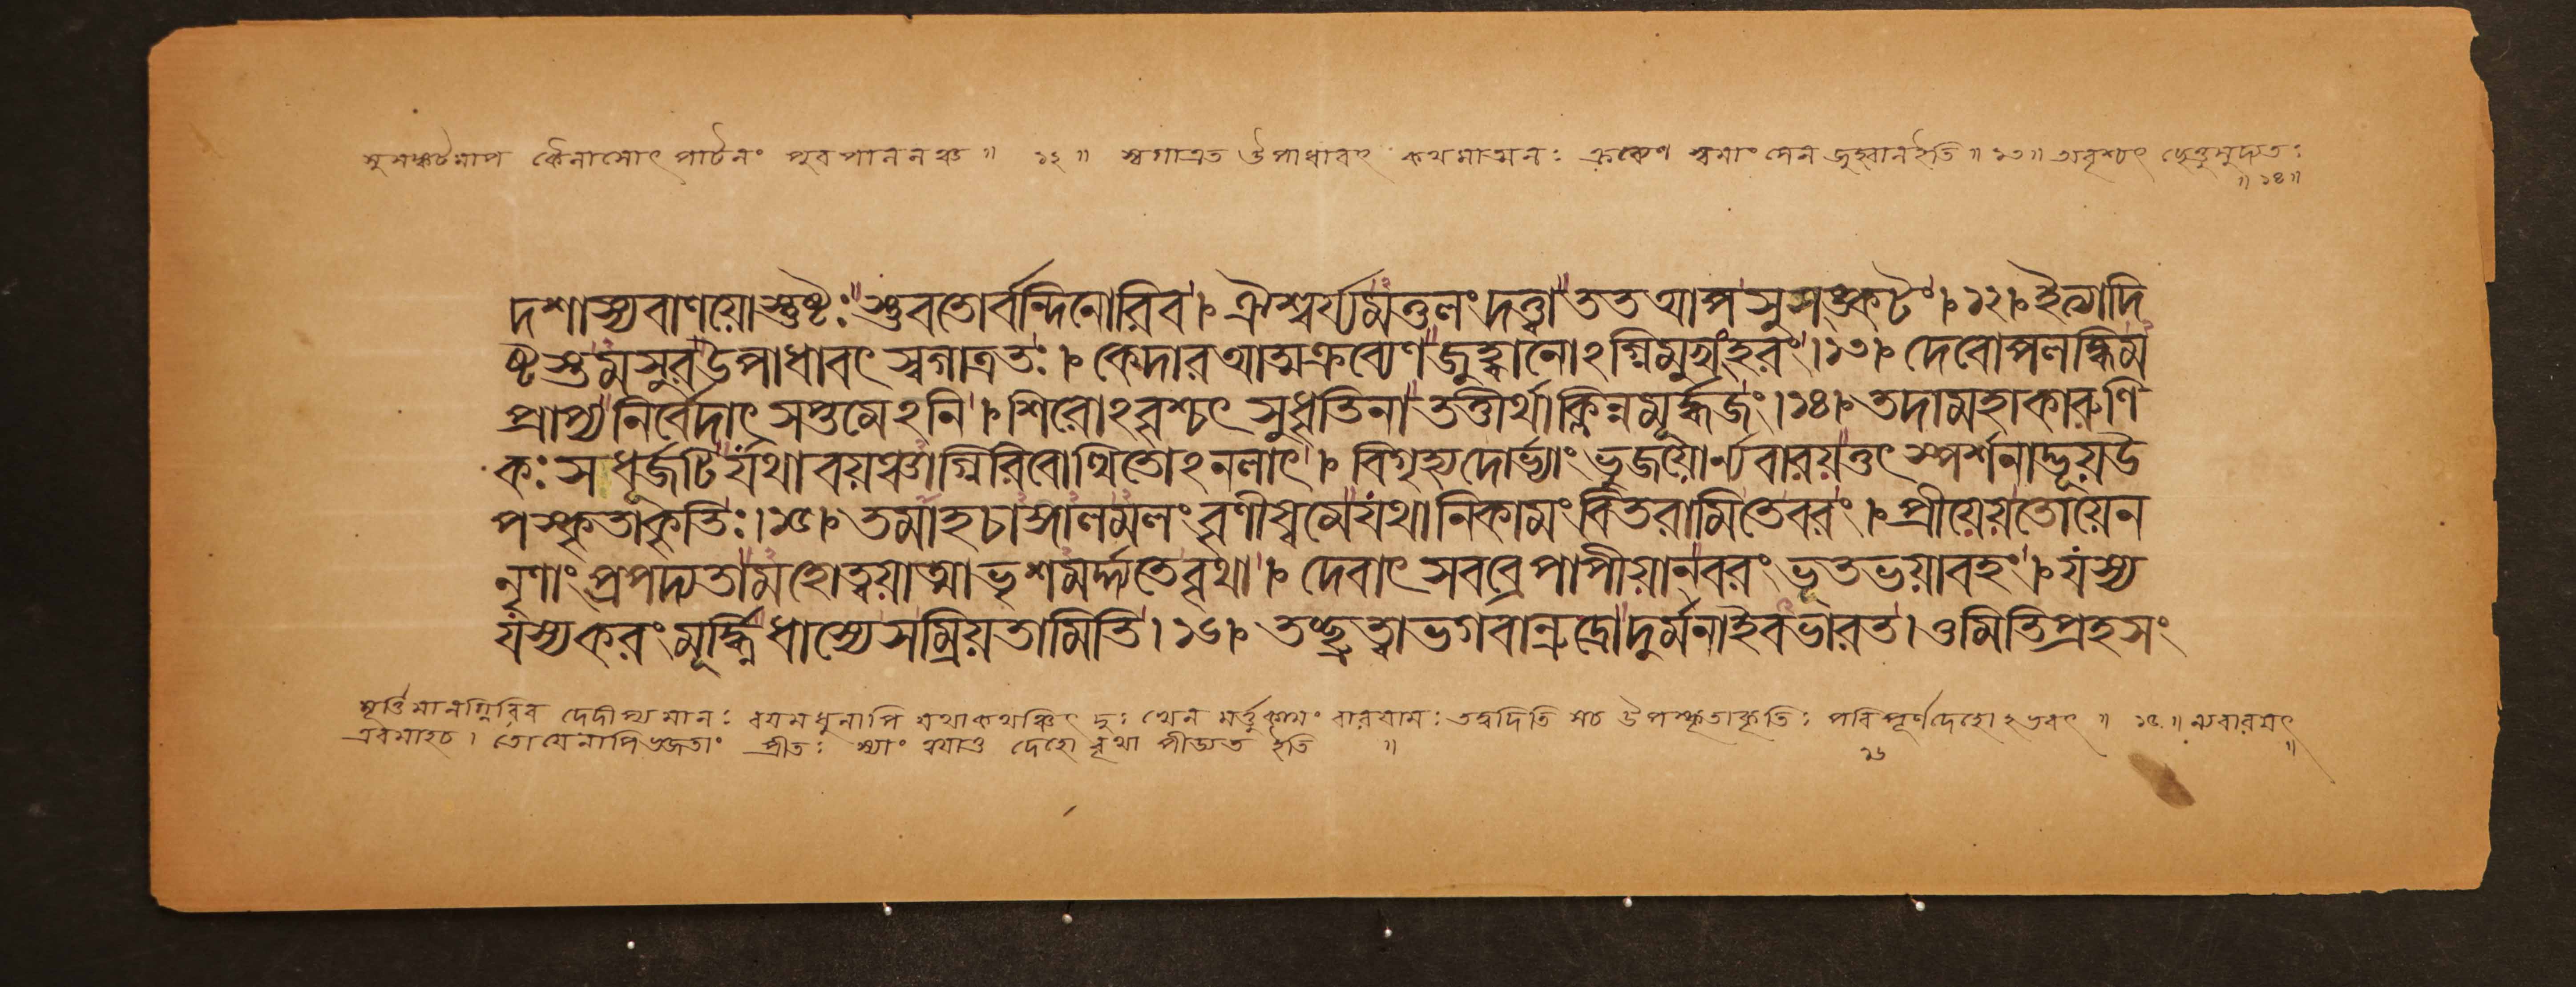 সুসঙ্কটমাপ কৈলাসোৎপাটনং পুরপালনঞ্চ ॥ ১২ ॥ স্বগাত্রত উপাধাবৎ কথমাত্মনঃ ক্রব্যেণ স্বমাংসেন জুহ্বান ইতি ॥ ১৩ ॥ অবৃশ্চৎ ছেত্তুমুদ্যতঃ
॥ ১৪ ॥
দশাস্যবাণয়োস্তুষ্টঃ স্তুবতোর্বন্দিনোরিব। ঐশ্বর্য্যমতুলং দত্ত্বা তত আপ সুসঙ্কটং। ১২। ইত্যাদি
ষ্টস্তমসুর উপাধাবৎ স্বগাত্রতঃ। কেদার আত্মক্রব্যেণ জুহ্বানোঽগ্নিমুখং হরং। ১৩। দেবোপলব্ধিম
প্রাপ্য নির্বেদাৎ সপ্তমেঽনি। শিরোঽবৃশ্চৎ সুধিতিনা তত্তীর্থক্লিন্নমূর্দ্ধজং। ১৪। তদা মহাকারুণি
কঃ স ধূর্জটির্যথা বয়ঞ্চাগ্নিরিবোত্থিতোঽনলাৎ। বিগৃহ্য দোর্ভ্যাং ভুজয়োর্ন্যবারয়ত্তৎ স্পর্শনাদ্ভূয় উ
পস্কৃতাকৃতিঃ। ১৫। তমাহ চাঙ্গালমলং বৃণীষ্ব মে যথা নিকামং বিতরামি তে বরং। প্রীয়েয় তোয়েন
নৃণাং প্রপদ্যতামহো ত্বয়াত্মা ভৃশমর্দ্দ্যতে বৃথা। দেবাৎ স বব্রে পাপীয়ান্ বরং ভূতভয়াবহং। যস্য
যস্য করং মূর্দ্ধ্নি ধাস্যে স ম্রিয়তামিতি। ১৬। তচ্ছ্রুত্বা ভগবান্রুদ্রো দুর্মনা ইব ভারত। ওমিতি প্রহসং
মূর্তিমানগ্নিরিব দেদীপ্যমানঃ বয়মধুনাপি যথা কথঞ্চিৎ দুঃখেন মর্ত্তুকামং বারয়ামঃ তদ্বদিতি উপস্কৃতাকৃতিঃ পরিপূর্ণদেহোঽভবৎ ॥ ১৫ ॥ ন্যবারয়ৎ
এবমাহ চ। তোয়েনাপি ভজতাং প্রীতঃ স্যাং ত্বয়া দেহো বৃথা পীড্যত ইতি ॥ ১৬ ॥